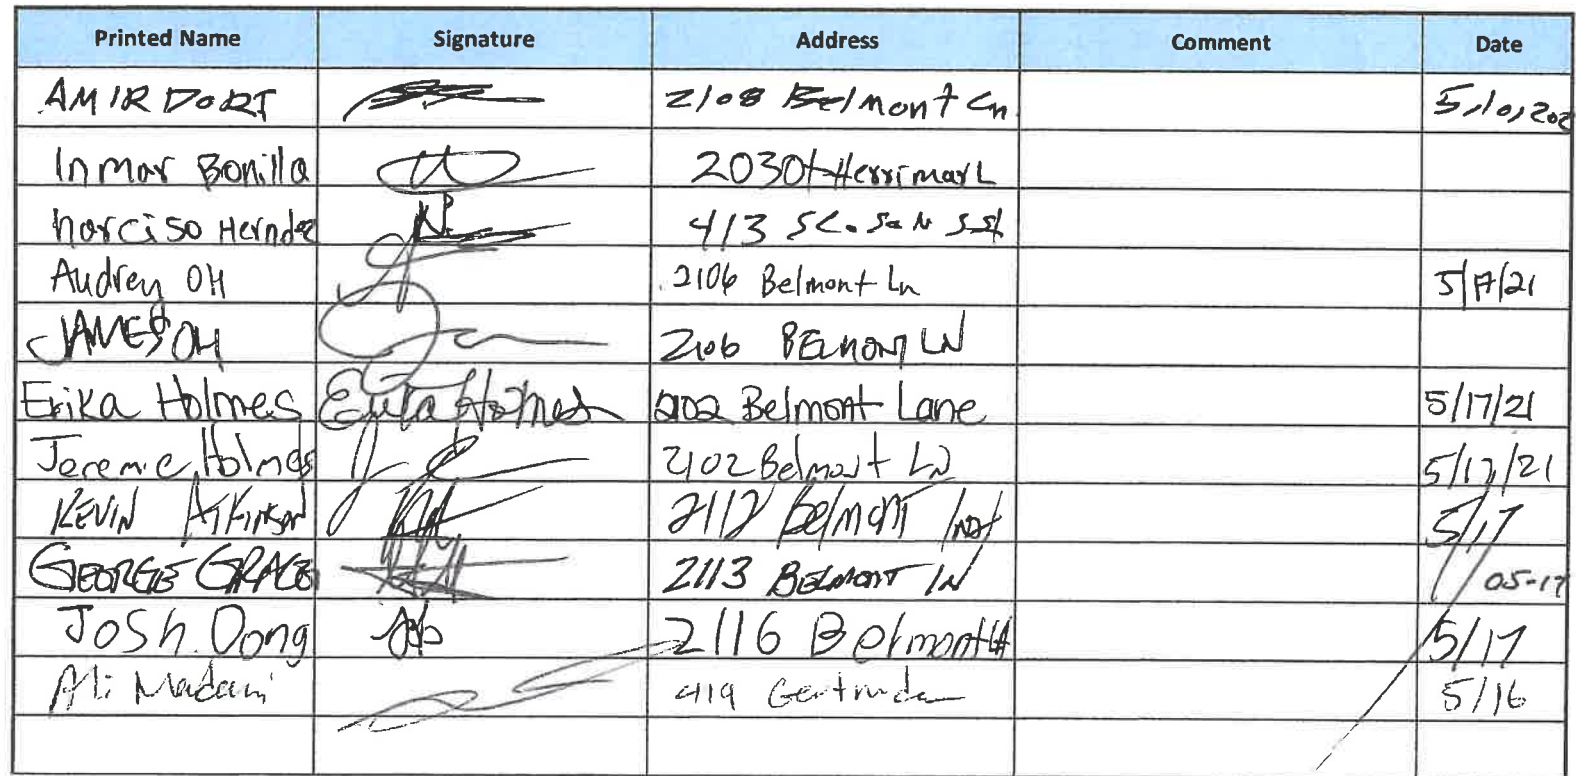 Printed Name Signature Address Comment Date
AMIR DORI 2108 Belmont Ln 5,10,202
Inmar Bonilla
narciso Herndez 413
Audrey OH 2106 Belmont Ln 5/17/21
JAMES OH 2106 BELMONT LN
Erika Holmes Erika Holmes 2102 Belmont Lane 5/17/21
Jeremie Holmes 2102 Belmont LN 5/17/21
KEVIN Atkinson 2112 Belmont 5/17
GEORGE GRACE 2113 BELMONT LN 05-17
Josh Dong 2116 Belmont 5/17
Ali Madani 419 Gertruda 5/16